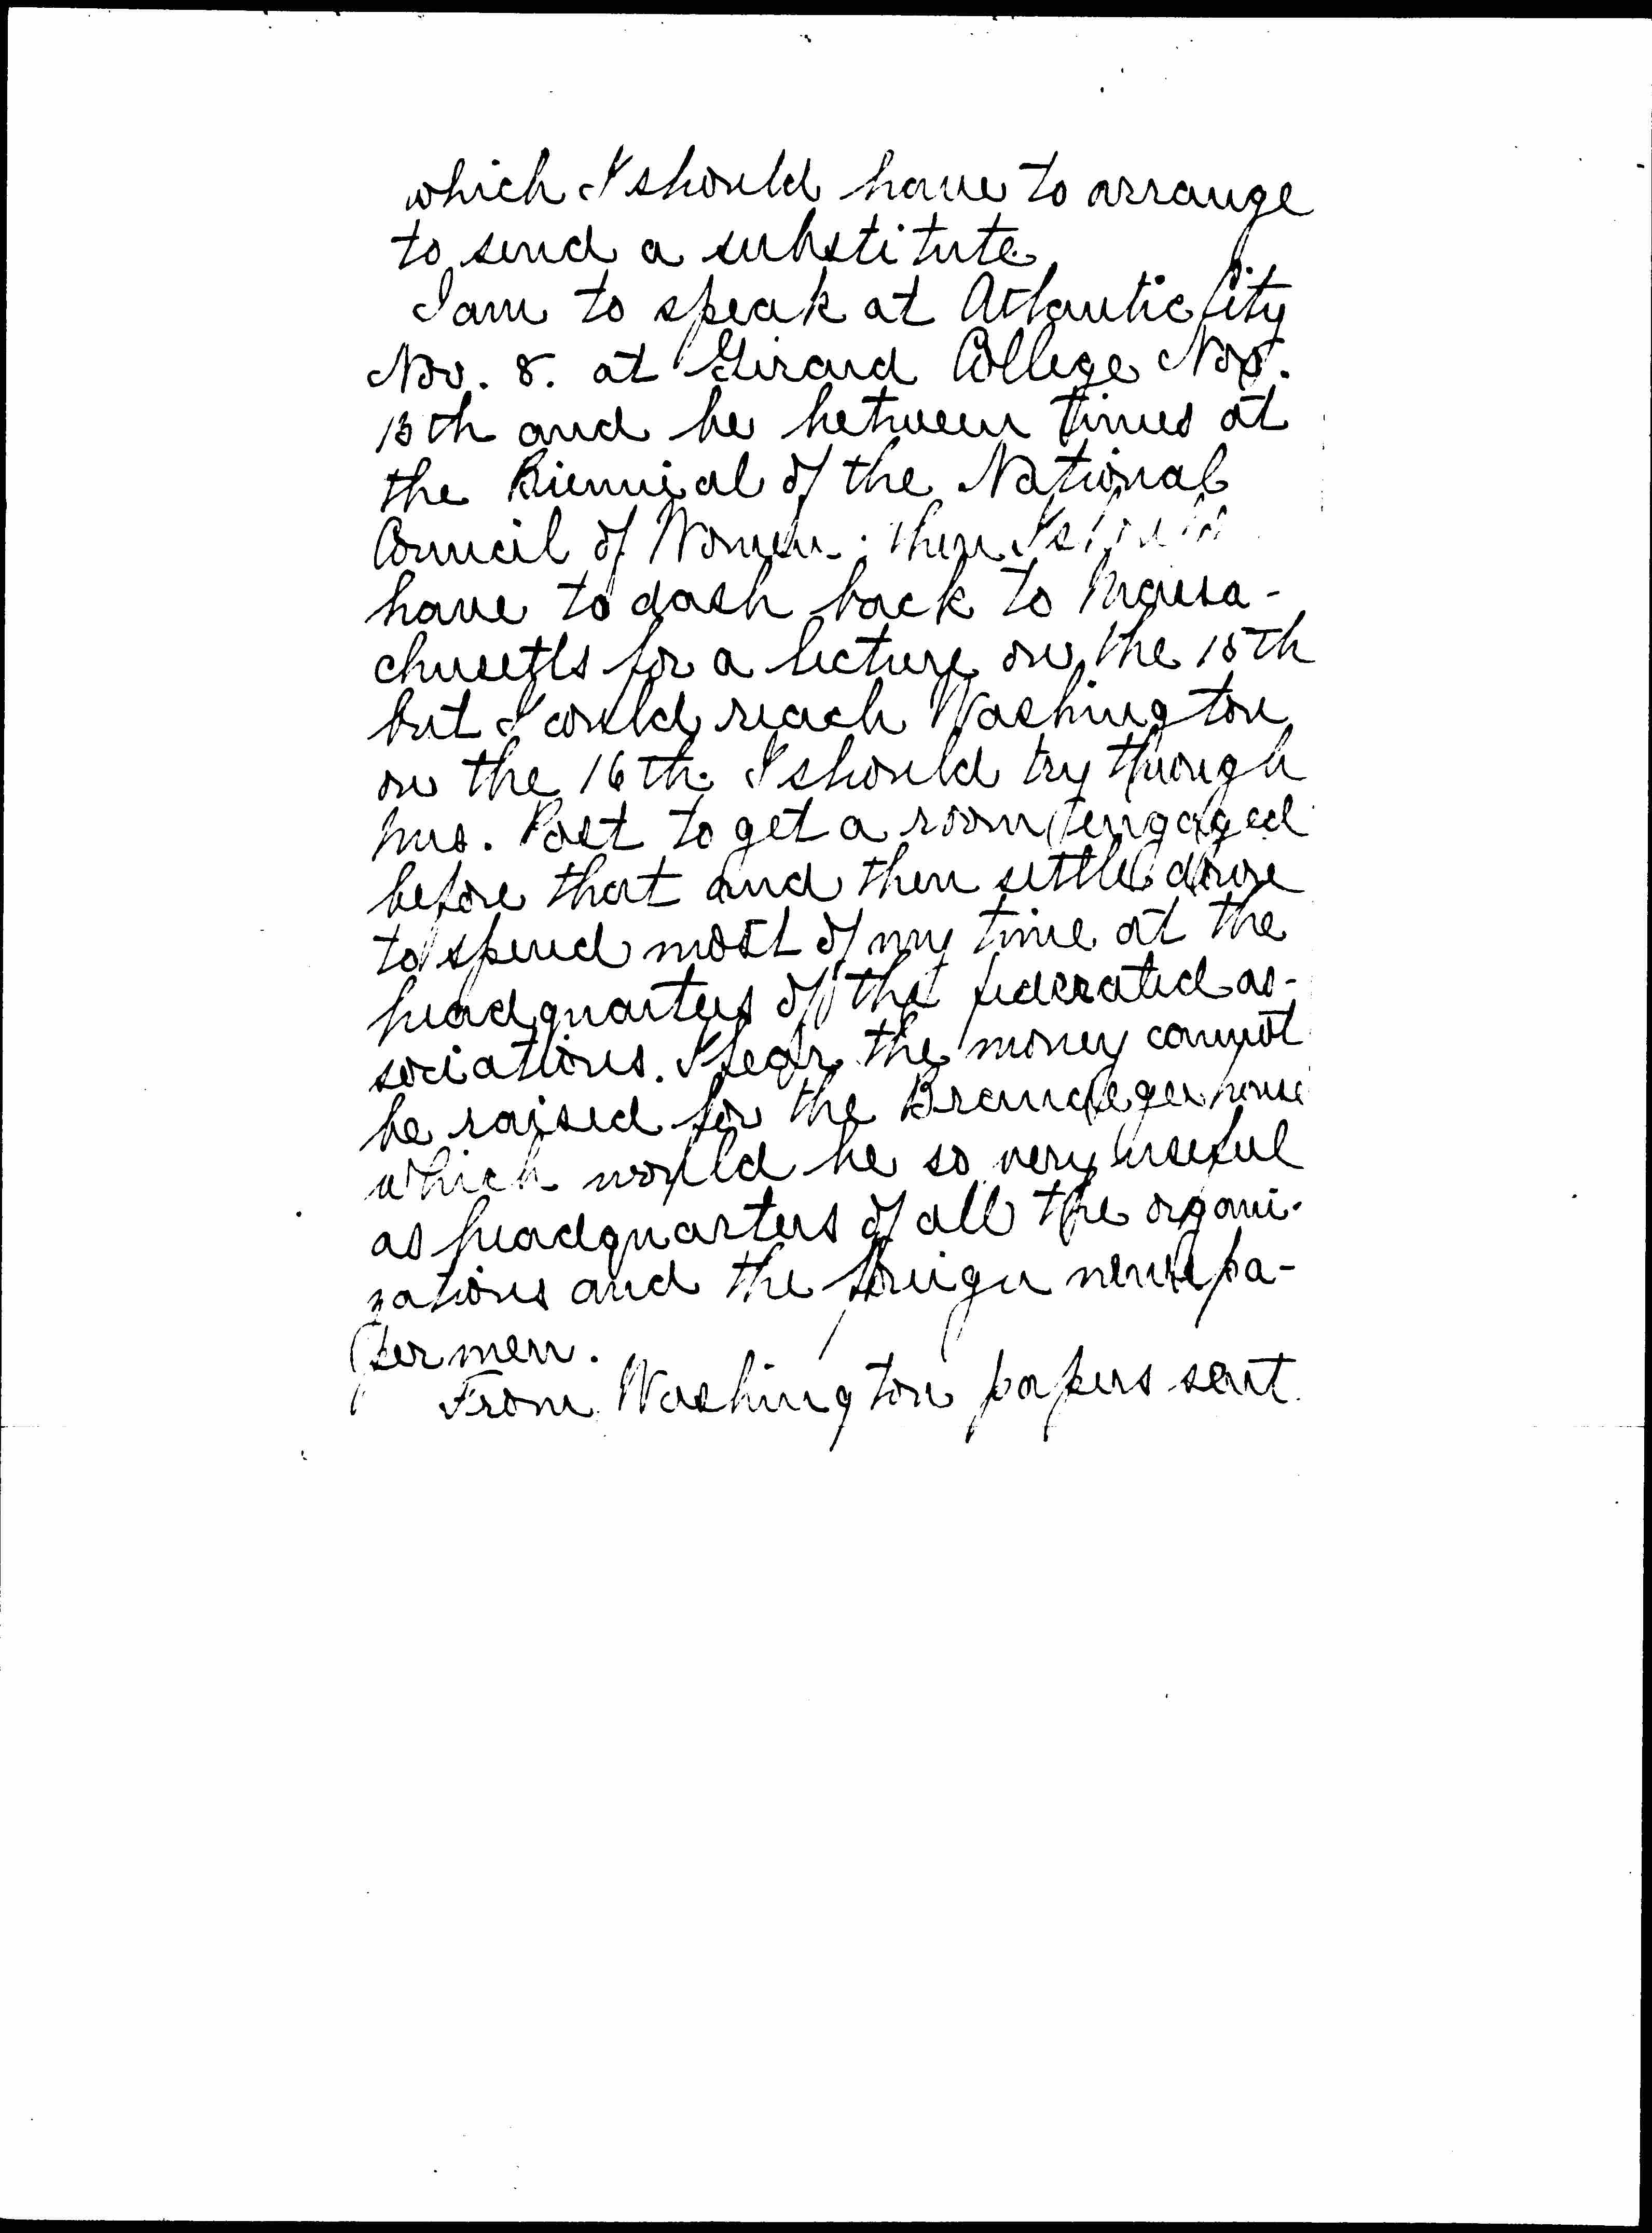 which I should have to arrange
to send a substitute.
I am to speak at Atlantic City
Nov. 8. at Girard College Nov.
13th and be between times at
the Biennial of the National
Council of Women; then I should
have to dash back to Massa-
chusetts for a lecture on the 15th
but I could reach Washington
on the 16th. I should try through
Mrs. Post to get a room engaged
before that and then settle down
to spend most of my time at the
headquarters of the federated as-
sociations. I fear the money cannot
be raised for the Brandegee house
which would be so very useful
as headquarters of all the organi-
zations and the foreign newspa-
per men.
From Washington papers sent